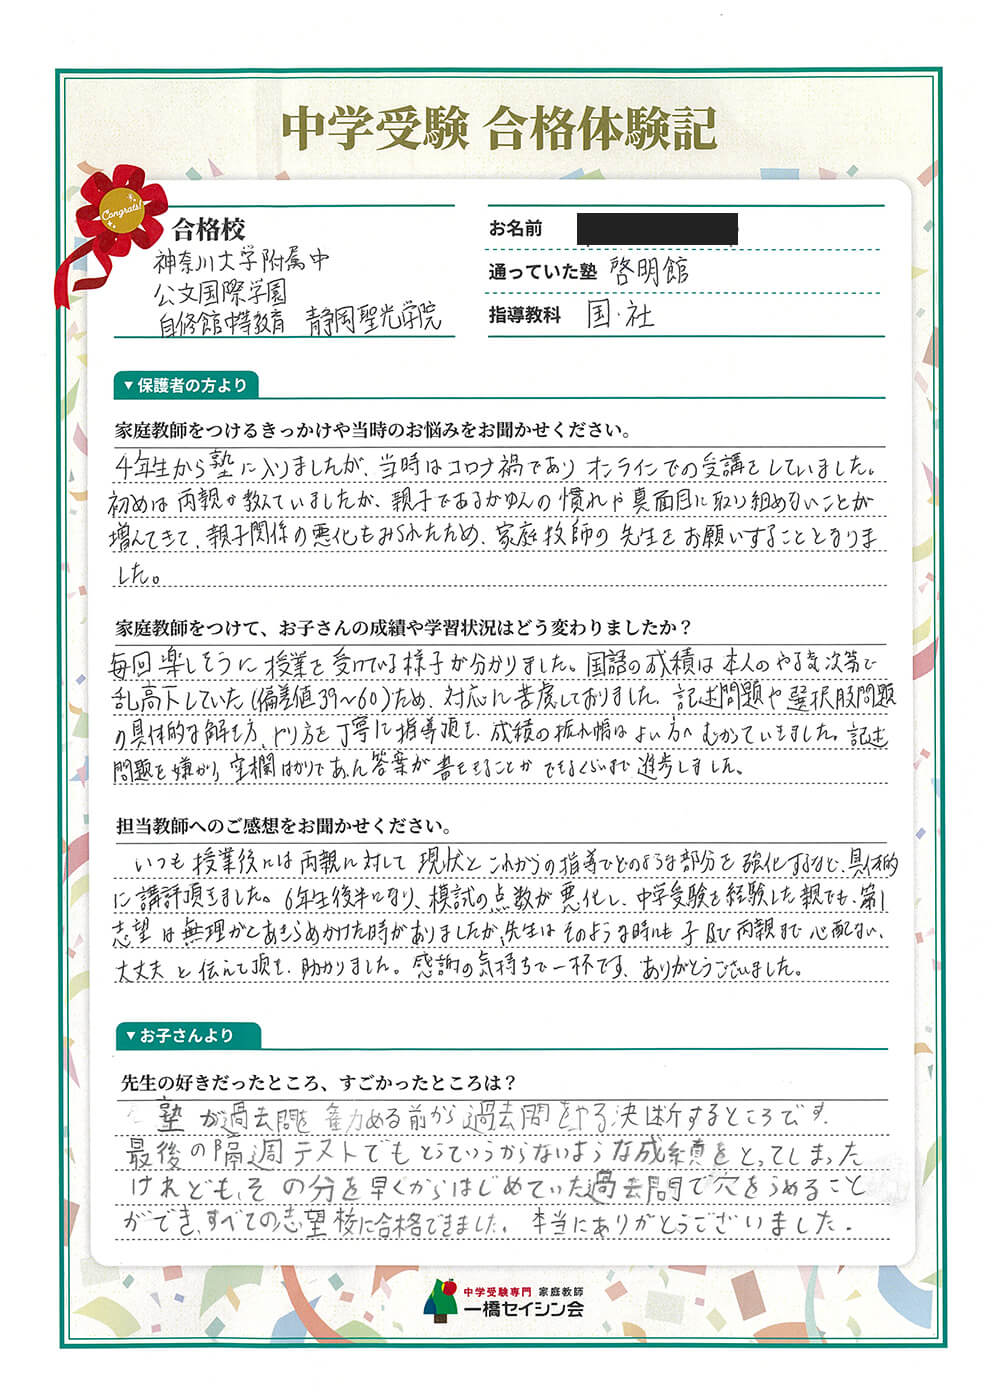 中学受験 合格体験記
Congrats!
合格校
神奈川大学附属中
公文国際学園
自修館中等教育 静岡聖光学院
お名前
通っていた塾 啓明館
指導教科 国・社
▼保護者の方より
家庭教師をつけるきっかけや当時のお悩みをお聞かせください。
4年生から塾に入りましたが、当時はコロナ禍でありオンラインでの受講をしていました。
初めは両親が教えていましたが、親子であるがゆえの慣れや真面目に取り組めないことが
増えてきて、親子関係の悪化もみられたため、家庭教師の先生をお願いすることとなりま
した。
家庭教師をつけて、お子さんの成績や学習状況はどう変わりましたか？
毎回楽しそうに授業を受けている様子が分かりました。国語の成績は本人のやる気次第で
乱高下していた(偏差値39〜60)ため、対応に苦慮しておりました。記述問題や選択肢問題
の具体的な解き方、とり方を丁寧に指導頂き、成績の振れ幅はよい方へむかっていきました。記述
問題を嫌がり、空欄ばかりであった答案が書ききることができるくらいまで進歩しました。
担当教師へのご感想をお聞かせください。
いつも授業後には両親に対して現状とこれからの指導でどのような部分を強化するなど、具体的
に講評頂きました。6年生後半になり、模試の点数が悪化し、中学受験を経験した親でも、第1
志望は無理かとあきらめかけた時がありましたが、先生はそのような時にも子及び両親まで心配ない、
大丈夫と伝えて頂き、助かりました。感謝の気持ちで一杯です、ありがとうございました。
▼お子さんより
先生の好きだったところ、すごかったところは？
塾が過去問を進める前から過去問をやる決断するところです。
最後の隔週テストでもとっていうからないような成績をとってしまった
けれども、その分を早くからはじめていた過去問で穴をうめること
ができ、すべての志望校に合格できました。本当にありがとうございました。
中学受験専門 家庭教師
一橋セイシン会